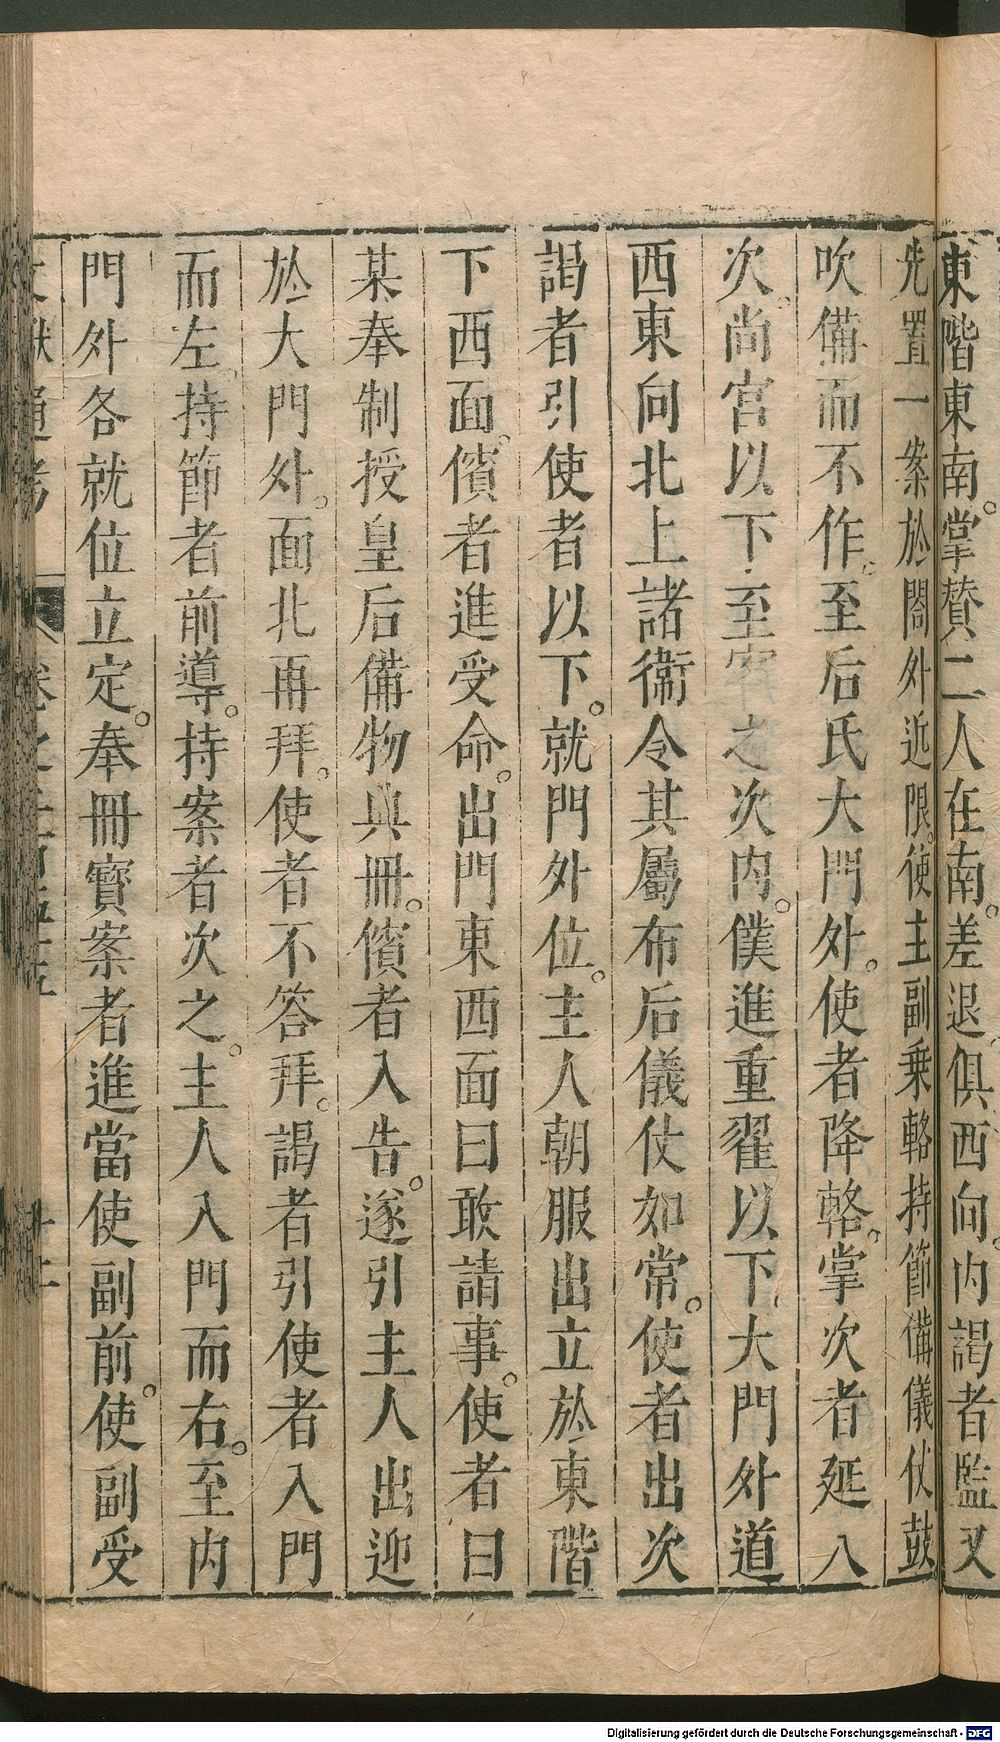 東階東南掌贊二人在南差退俱西向內謁者監又
先置一案於閤外近限使主副乗輅持節備儀仗鼓
吹備而不作至后氏大門外使者降輅掌次者延入
次尚宮以下至之次内僕進重翟以下大門外道
西東向北上諸衞令其屬布后儀仗如常使者出次
謁者引使者以下就門外位主人朝服出立於東階
下西面儐者進受命出門東西面曰敢請事使者曰
某奉制授皇后備物典冊儐者入告遂引主人出迎
於大門外面北再拜使者不答拜謁者引使者入門
而左持節者前導持案者次之主人入門而右至内
門外各就位立定奉冊寳案者進當使副前使副受
通考 卷之
Digitalisierung gefördert durch die Deutsche Forschungsgemeinschaft - DFG